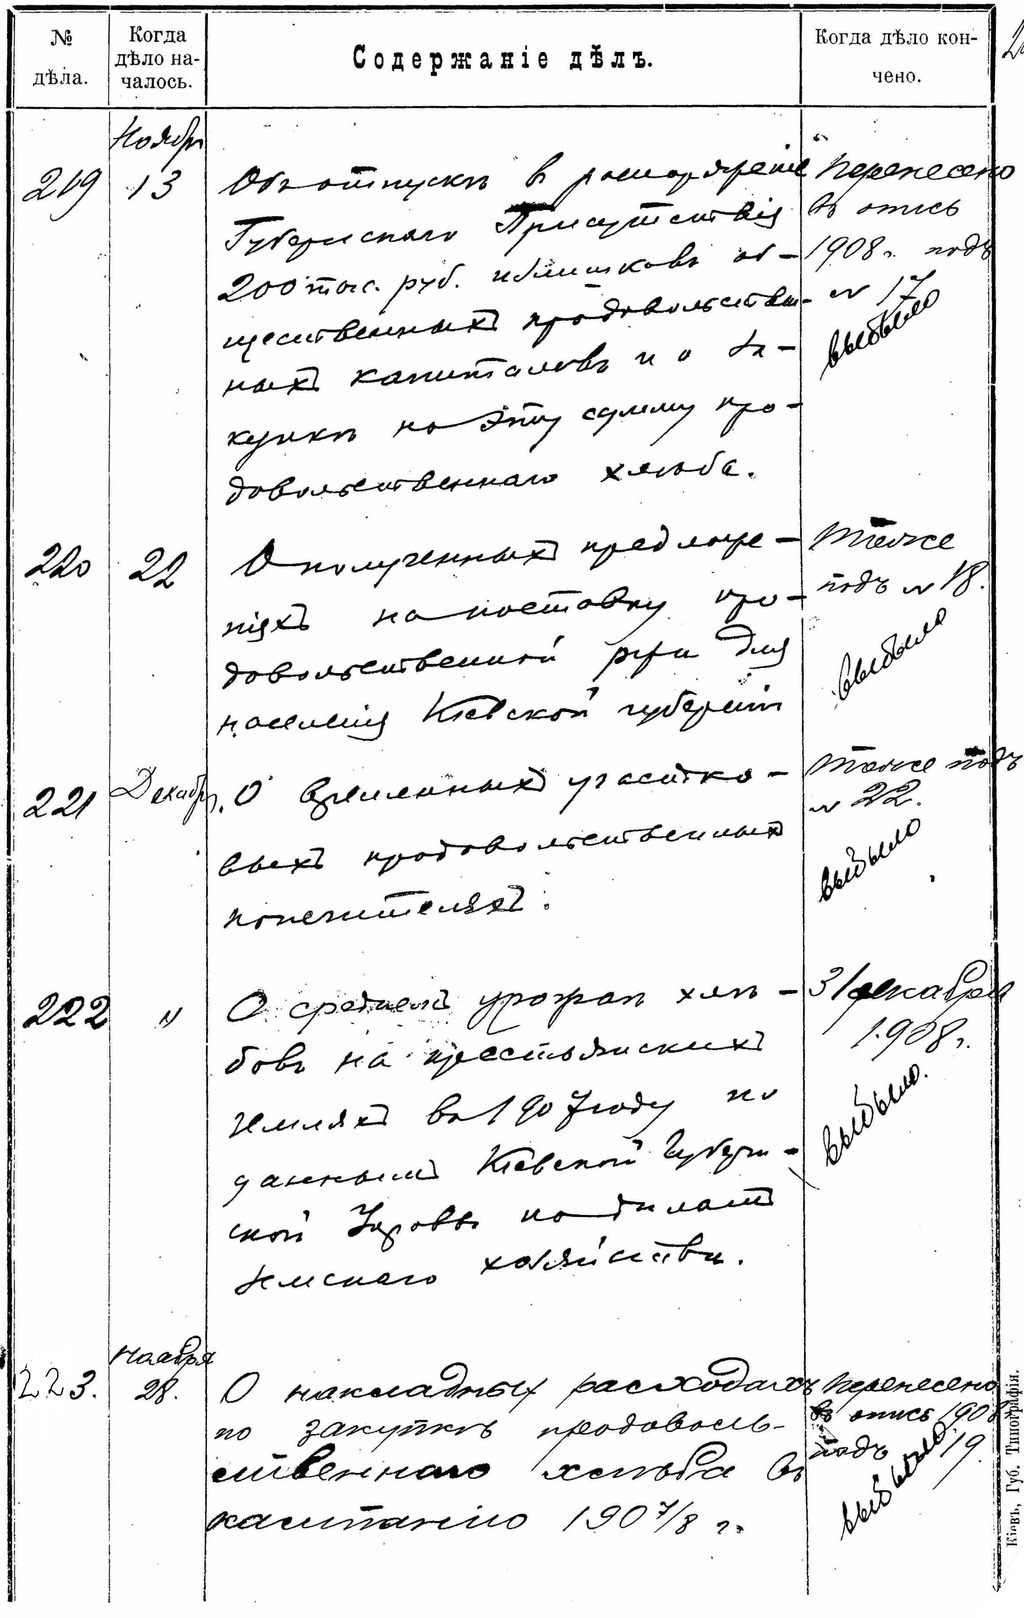 № дѣла.
Когда дѣло на-
чалось.
Содержаніе дѣлъ.
Когда дѣло кон-
чено.
Ноября
219 13 Объ отпускѣ в распоряженіе
Губернскаго Присутствія
200 тыс. руб. излишковъ об-
щественныхъ продовольствен-
ныхъ капиталовъ и о за-
купкѣ на эту сумму про-
довольственнаго хлѣба.
Перенесено
въ опись
1908 г. подъ
№ 17
выбыло
220 22 О полученныхъ предложе-
ніяхъ на поставку про-
довольственной ржи для
населенія Кіевской губерніи
Тоже
подъ № 18.
выбыло
221 Декабр. О временныхъ участко-
выхъ продовольственныхъ
попечителяхъ.
Тоже подъ
№ 22.
выбыло
222 " О среднемъ урожаѣ хлѣ-
бовъ на крестьянскихъ
земляхъ въ 1907 году по
даннымъ Кіевской Губерн-
ской Управы по дѣламъ
земскаго хозяйства.
31 декабря
1908 г.
выбыло.
Ноября
223. 28. О накладныхъ расходахъ
по закупкѣ продоволь-
ственнаго хлѣба въ
кампанію 1907/8 г.
Перенесено
въ опись 1908
подъ 19
выбыло.
Кіевъ, Губ. Типографія.